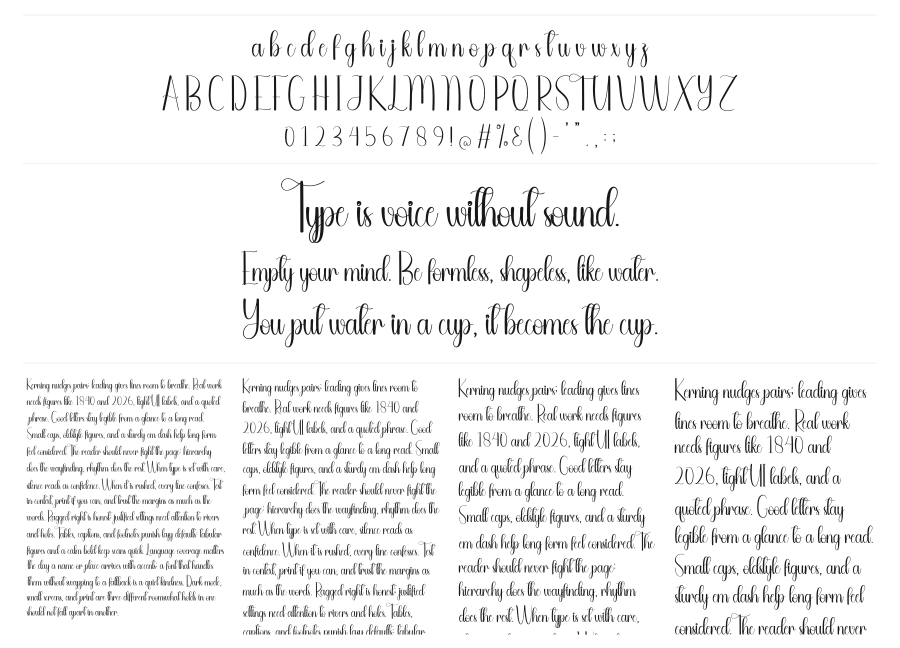 a b c d e f g h i j k l m n o p q r s t u v w x y z
A B C D E F G H I J K L M N O P Q R S T U V W X Y Z
0 1 2 3 4 5 6 7 8 9 ! @ # % & ( ) - ' " . , : ;
Type is voice without sound.
Empty your mind. Be formless, shapeless, like water.
You put water in a cup, it becomes the cup.
Kerning nudges pairs; leading gives lines room to breathe. Real work
needs figures like 1840 and 2026, tight UI labels, and a quoted
phrase. Good letters stay legible from a glance to a long read.
Small caps, oldstyle figures, and a sturdy em dash help long form
feel considered. The reader should never fight the page: hierarchy
does the wayfinding, rhythm does the rest. When type is set with care,
silence reads as confidence. When it is rushed, every line confesses. Test
in context, print if you can, and trust the margins as much as the
words. Ragged right is honest; justified settings need attention to rivers
and holes. Tables, captions, and footnotes punish lazy defaults: tabular
figures and a calm bold keep scans quick. Language coverage matters
the day a name or place arrives with accents; a font that handles
them without swapping to a fallback is a quiet kindness. Dark mode,
small screens, and print are three different rooms; what holds in one
should not fall apart in another.
Kerning nudges pairs; leading gives lines room to
breathe. Real work needs figures like 1840 and
2026, tight UI labels, and a quoted phrase. Good
letters stay legible from a glance to a long read. Small
caps, oldstyle figures, and a sturdy em dash help long
form feel considered. The reader should never fight the
page: hierarchy does the wayfinding, rhythm does the
rest. When type is set with care, silence reads as
confidence. When it is rushed, every line confesses. Test
in context, print if you can, and trust the margins as
much as the words. Ragged right is honest; justified
settings need attention to rivers and holes. Tables,
captions, and footnotes punish lazy defaults: tabular
Kerning nudges pairs; leading gives lines
room to breathe. Real work needs figures
like 1840 and 2026, tight UI labels,
and a quoted phrase. Good letters stay
legible from a glance to a long read.
Small caps, oldstyle figures, and a sturdy
em dash help long form feel considered. The
reader should never fight the page:
hierarchy does the wayfinding, rhythm
does the rest. When type is set with care,
Kerning nudges pairs; leading gives
lines room to breathe. Real work
needs figures like 1840 and
2026, tight UI labels, and a
quoted phrase. Good letters stay
legible from a glance to a long read.
Small caps, oldstyle figures, and a
sturdy em dash help long form feel
considered. The reader should never